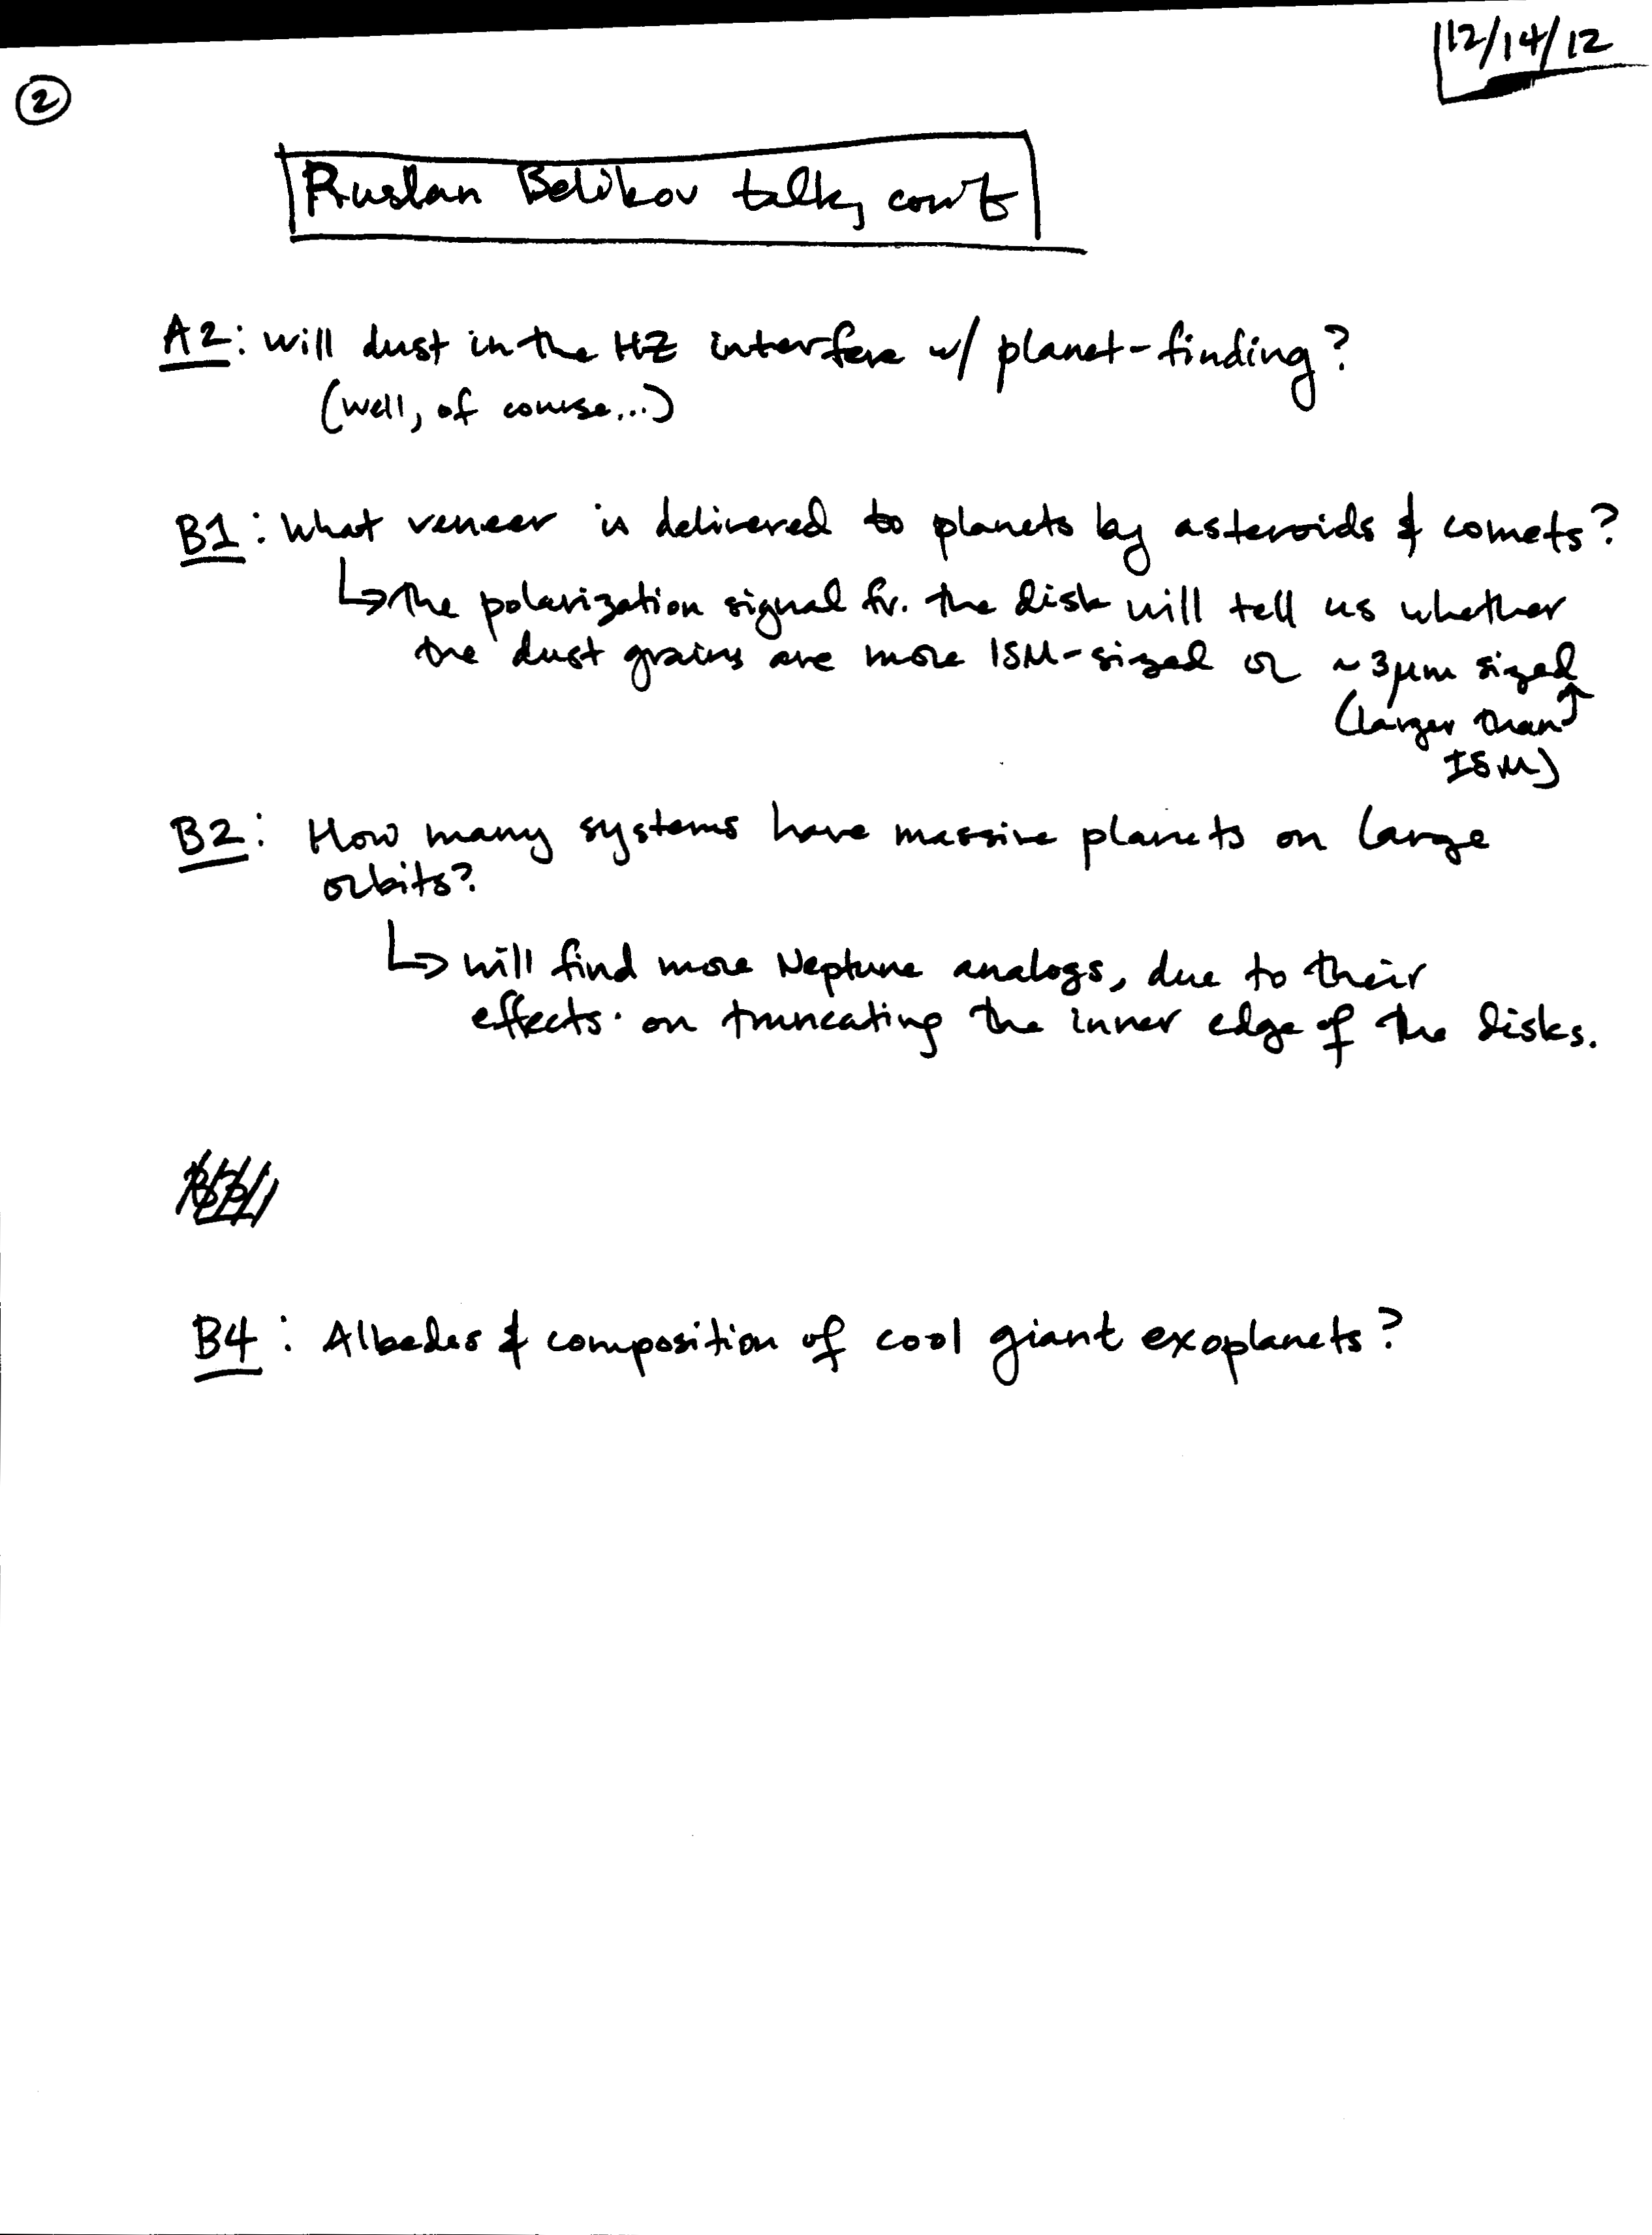 12/14/12
2
Ruslan Belikov talk, con't
A2: Will dust in the HZ interfere w/ planet-finding?
(well, of course...)
B1: What veneer is delivered to planets by asteroids & comets?
↳ the polarization signal fr. the disk will tell us whether
the dust grains are more ISM-sized or ~3μm sized
(larger than
ISM)
B2: How many systems have massive planets on large
orbits?
↳ will find more Neptune analogs, due to their
effects on truncating the inner edge of the disks.
B4: Albedos & composition of cool giant exoplanets?